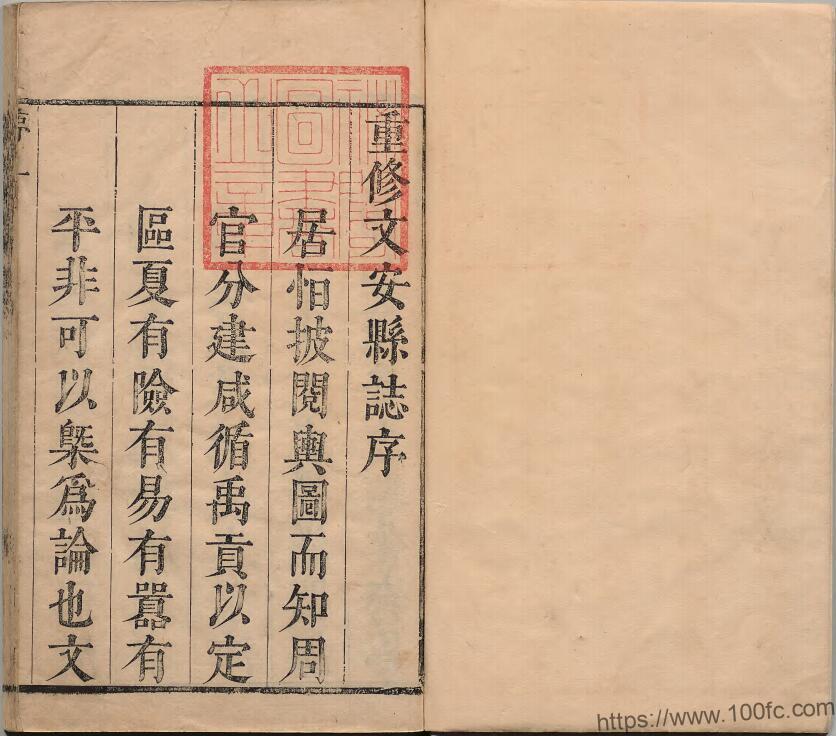 重修文安縣誌序
居怕披閱輿圖而知周
官分建咸循禹貢以定
區夏有險有易有囂有
平非可以槩爲論也文
序 一
https://www.100fc.com